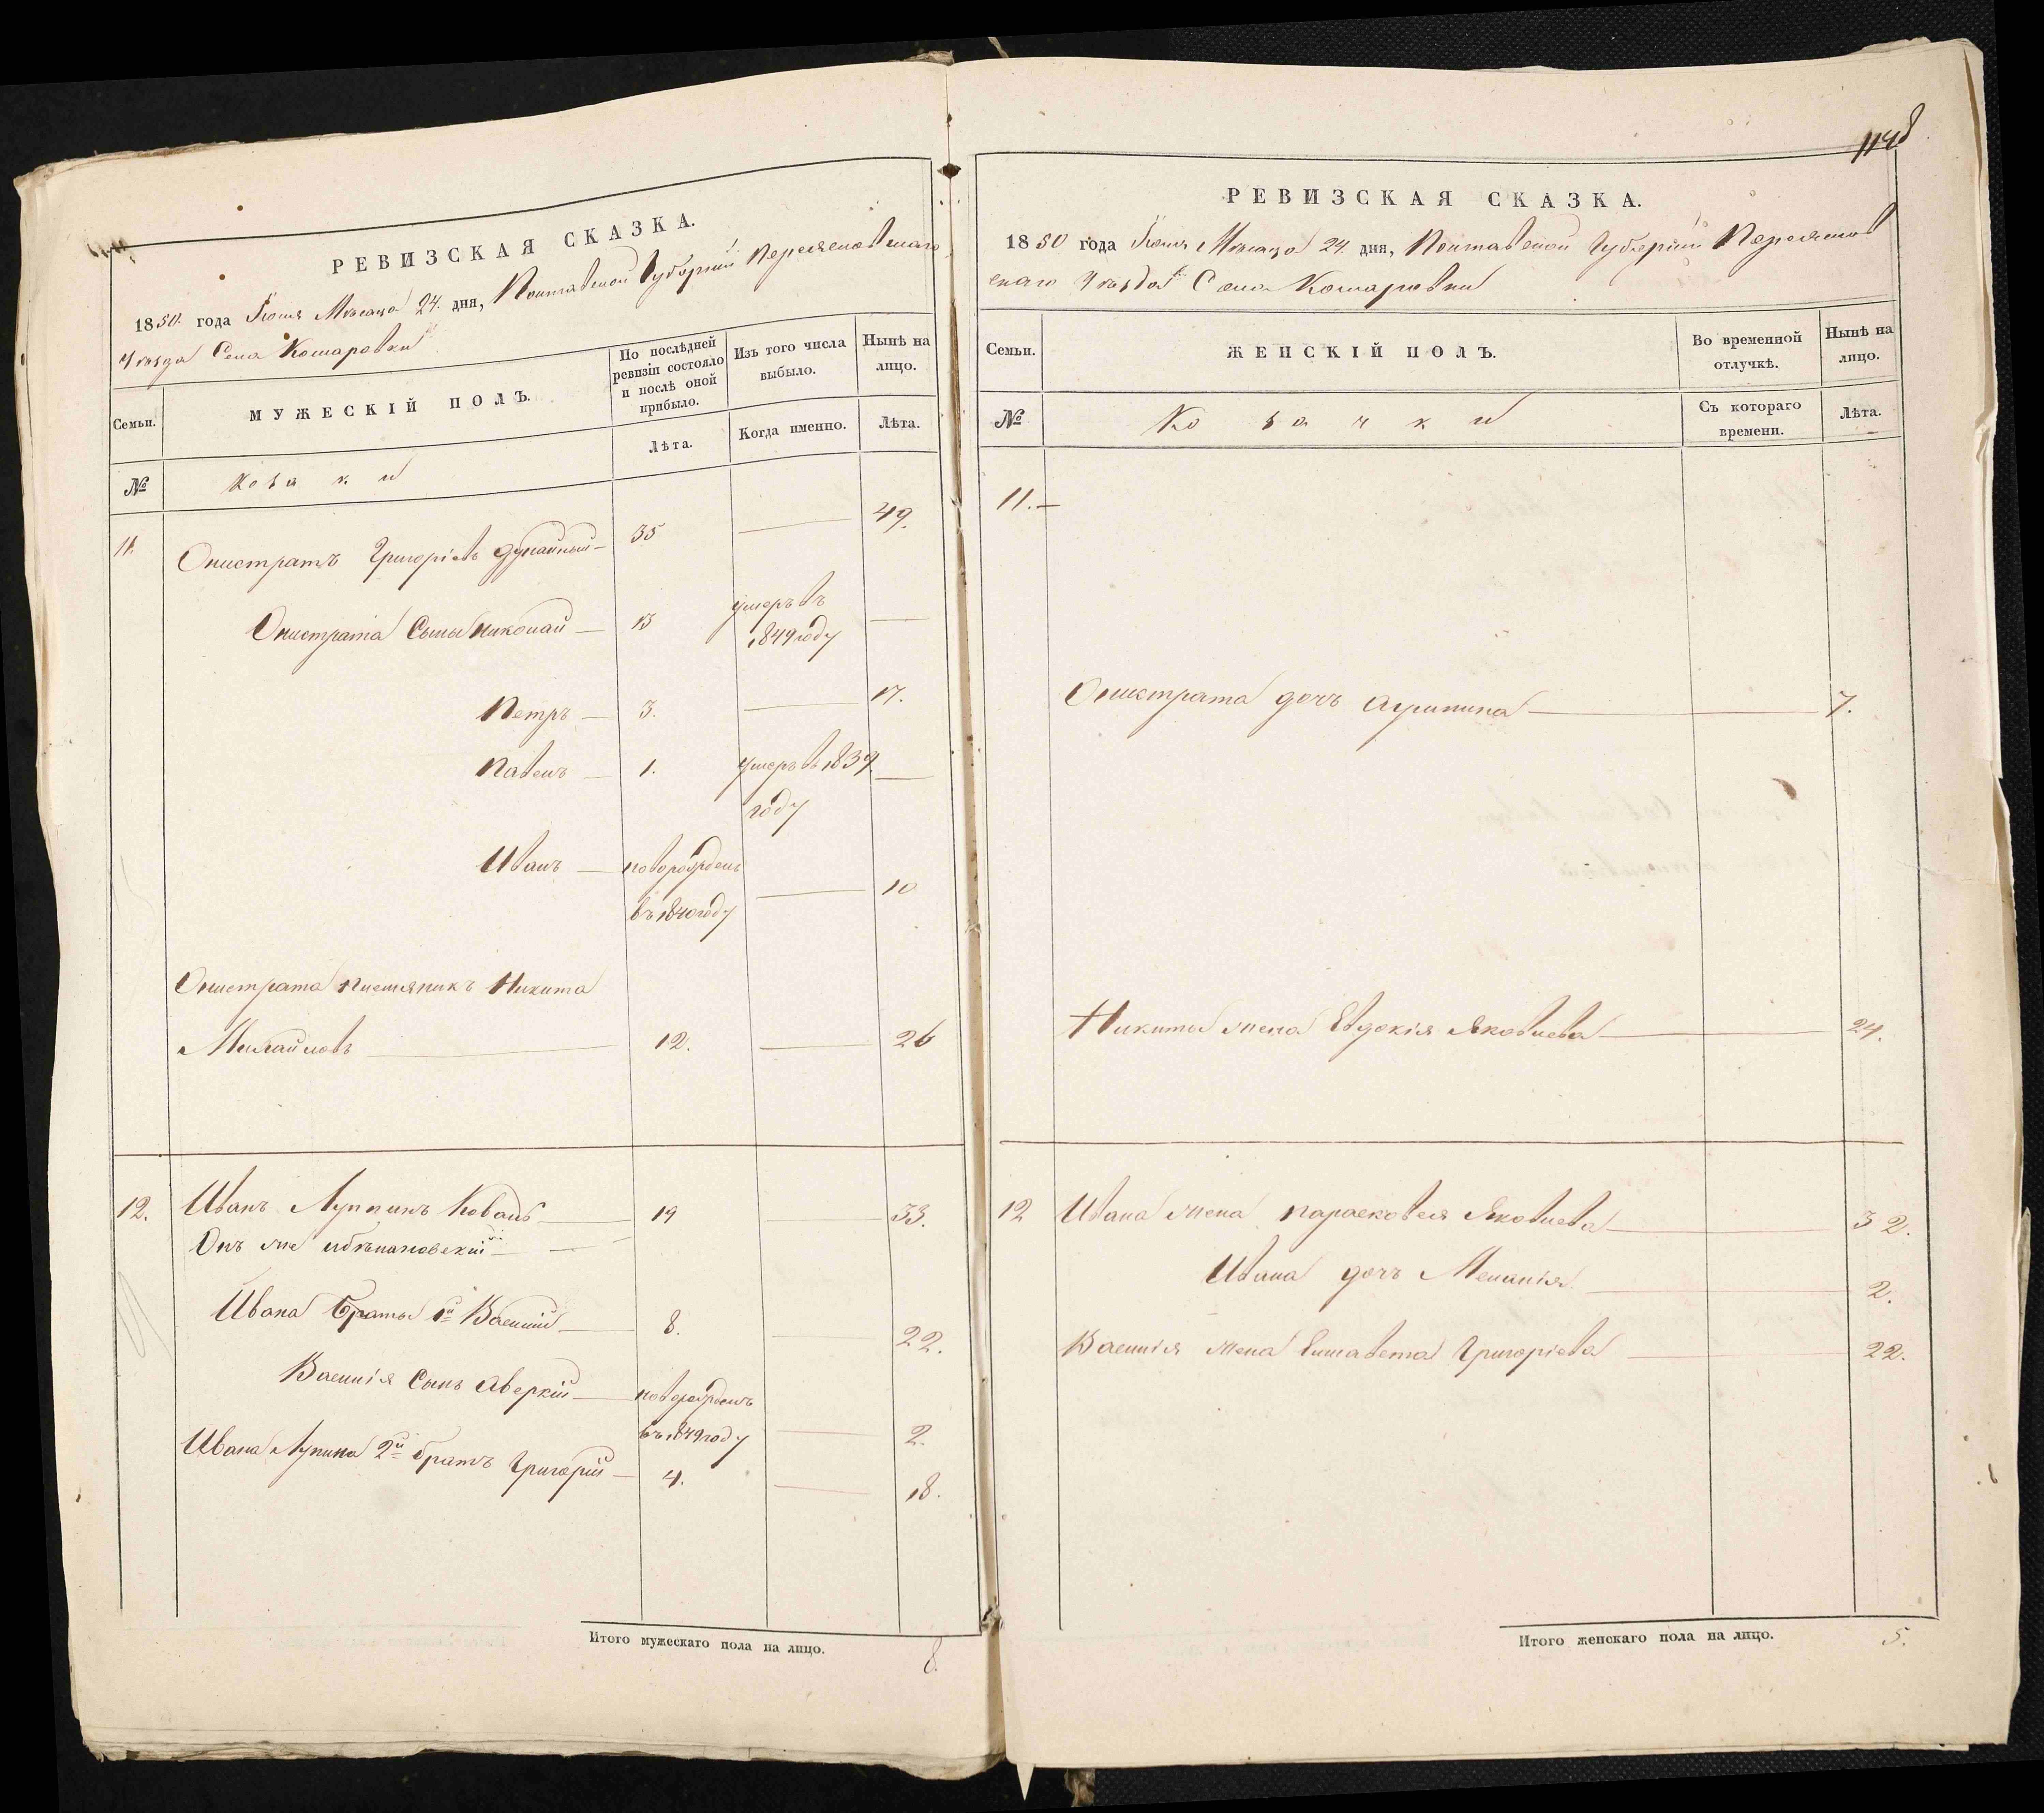 РЕВИЗСКАЯ СКАЗКА.
1850. года Іюня Мѣсяца 24. дня, Полтавской Губерніи Переяславскаго
Уѣзда Села Комаровки
Семьи.
МУЖЕСКІЙ ПОЛЪ.
По послѣдней ревизіи состояло и послѣ оной прибыло.
Изъ того числа выбыло.
Нынѣ на лицо.
№
Козаки
Лѣта.
Когда именно.
Лѣта.
11. Онистратъ Григорієвъ 35 49.
Онистрата Сыны Николай 13 умеръ въ
1849 году
Петръ 3. 17.
Павелъ 1. умеръ въ 1839.
году
Иванъ новорожденъ
въ 1840 году 10
Онистрата племяникъ Никита
Михайловъ 12. 26
12. Иванъ Лупинъ Коваль 19 33.
Онъ же
Ивана Браты 1й Василій 8. 22.
Василія Сынъ Аверкій новорожденъ
въ 1849 году 2.
Ивана Лупина 2й братъ Григорій 4. 18.
Итого мужескаго пола на лицо. 8.
1148
РЕВИЗСКАЯ СКАЗКА.
1850 года Іюня Мѣсяца 24. дня, Полтавской Губерніи Переяслав
скаго Уѣзда Села Комаровки
Семьи.
ЖЕНСКІЙ ПОЛЪ.
Во временной отлучкѣ.
Нынѣ на лицо.
№
Козачки
Съ котораго времени.
Лѣта.
11.
Онистрата дочь Агрипина 7.
Никиты жена Евдокія Яковлева 24.
12 Ивана жена Парасковея Яковлева 32.
Ивана дочь Меланія 2.
Василія жена Елисавета Григоріева 22.
Итого женскаго пола на лицо. 5.